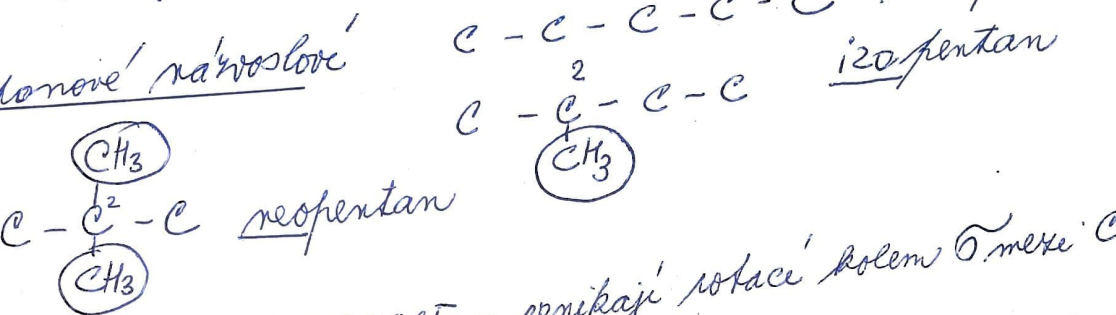 C – C – C – C – C
názvosloví
2
C – C – C – C izopentan
CH3
CH3
C – C² – C neopentan
CH3
vznikají rotací kolem σ mezi C